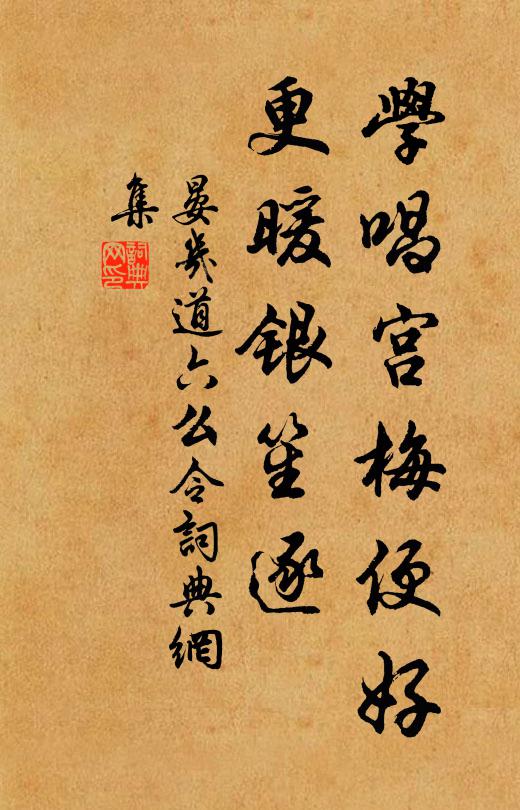 學唱宫梅便好
更暖銀笙逐
晏幾道六么令詞典網
集
詞典
网印